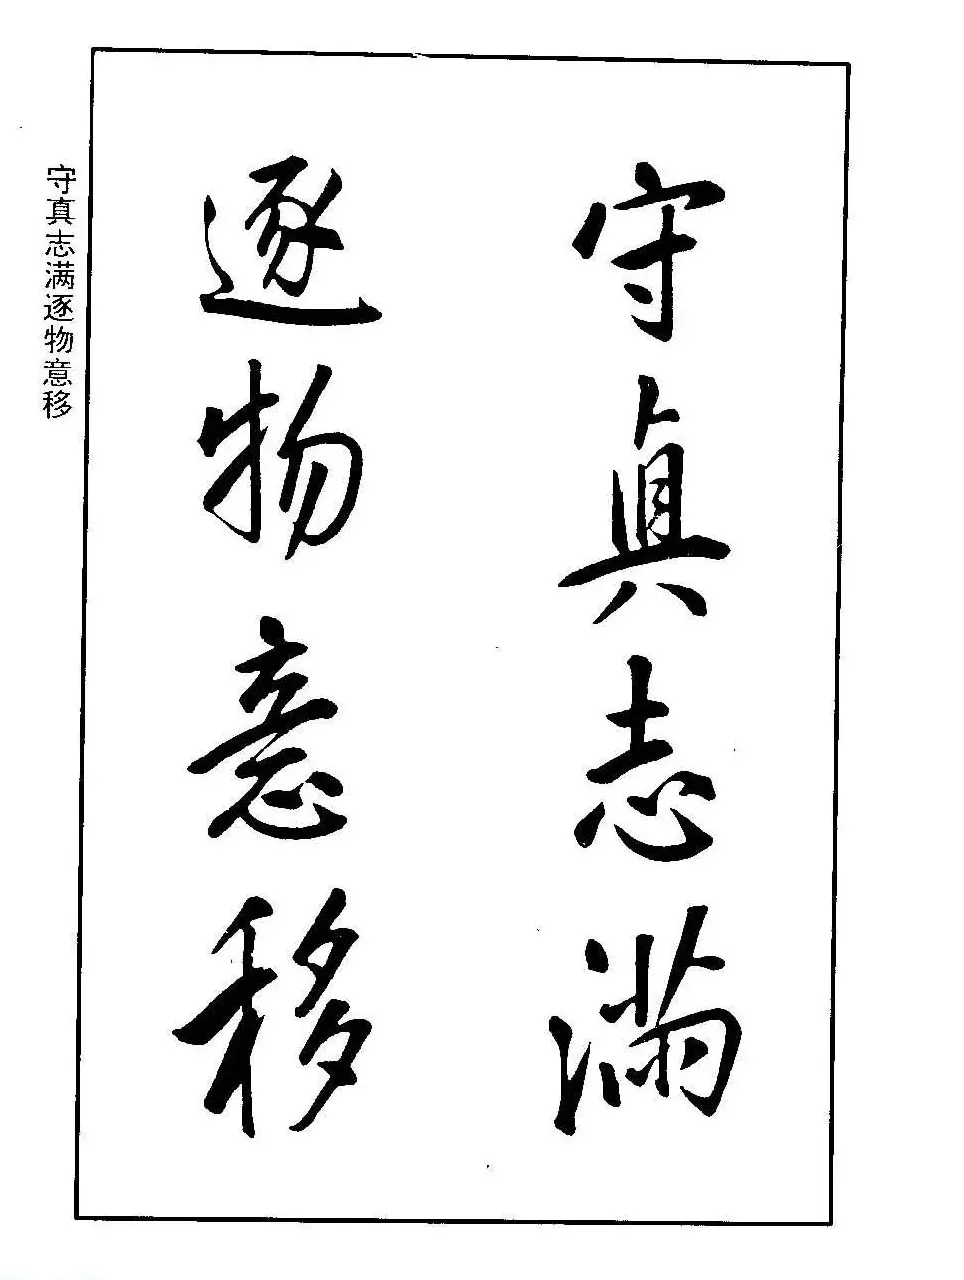 守真志满
逐物意移
守真志满逐物意移